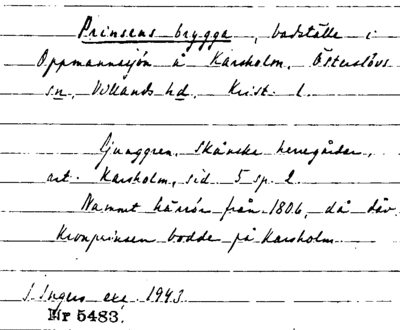 Prinsens brygga, badställe i
Oppmannasjön å Karsholm, Österslövs
sn, Villands hd, Krist. l.
Ljunggren, Skånska herregårdar,
art. Karsholm, sid 5 sp. 2.
Namnet härrör från 1806, då dåv.
Kronprinsen bodde på Karsholm.
J Ingers exc. 1943.
Nr 5483.